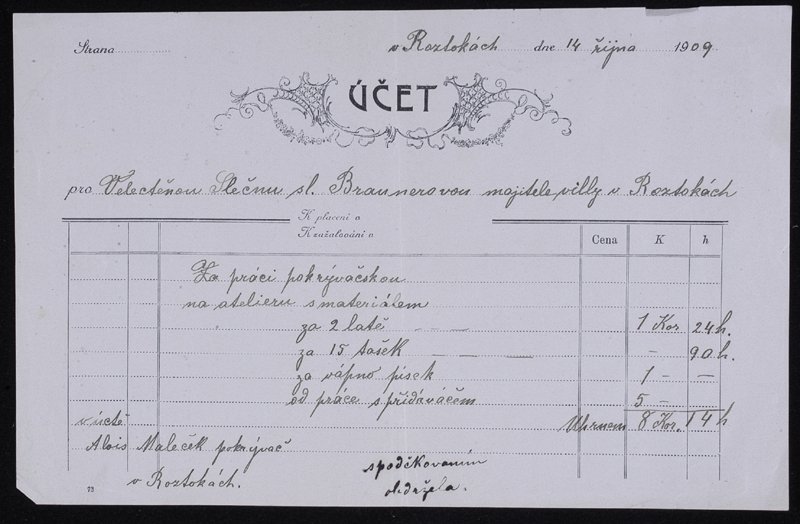 Strana v Roztokách dne 14 října 1909
ÚČET
pro Velectěnou Slečnu sl. Braunerovou majitele villy v Roztokách
K placení v
K zažalování v
Cena K h
Za práci pokrývačskou
na atelieru s materiálem
za 2 latě — — 1 Kor 24 h.
za 15 tašek — — — - 90 h.
za vápno písek 1 - —
od práce s přidáváčem 5 -
v úctě Uhrnem 8 Kor. 14 h
Alois Maleček pokrývač
v Roztokách.
s poděkovaním
obdržela.
73